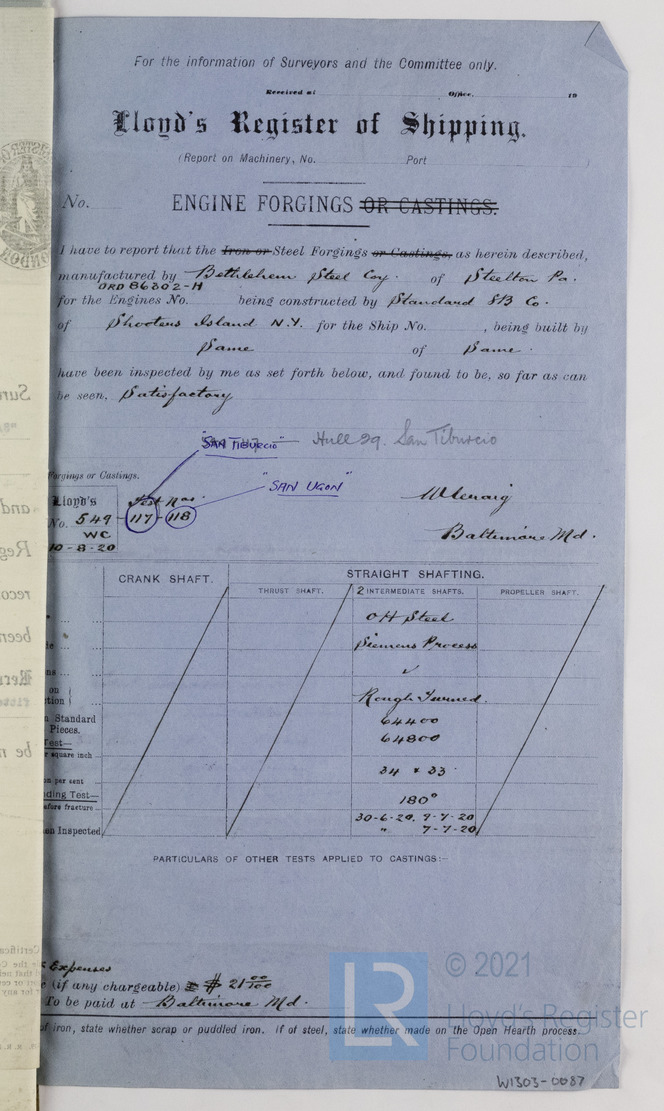 For the information of Surveyors and the Committee only.
Received at Office, 19
Lloyd's Register of Shipping.
(Report on Machinery, No. Port )
No. ENGINE FORGINGS OR CASTINGS.
I have to report that the Iron or Steel Forgings or Castings, as herein described,
manufactured by Bethlehem Steel Coy. of Steelton Pa.
ORD 86302-H
for the Engines No. being constructed by Standard SB Co.
of Shooters Island N.Y. for the Ship No. , being built by
Same of Same.
have been inspected by me as set forth below, and found to be, so far as can
be seen, Satisfactory
"SAN TIBURCIO" Hull 29. San Tiburcio
Forgings or Castings.
"SAN UGON"
Lloyd's Test Nos.
No. 549 117 - 118
WC
10-8-20
Baltimore Md.
CRANK SHAFT. STRAIGHT SHAFTING.
THRUST SHAFT. 2 INTERMEDIATE SHAFTS. PROPELLER SHAFT.
OH Steel
Siemens Process
✓
on
tion Rough Turned.
Standard 64400
Pieces. 64800
Test—
square inch
on per cent 34 & 33
ding Test— 180°
efore fracture
30-6-20, 7-7-20
on Inspected " 7-7-20
PARTICULARS OF OTHER TESTS APPLIED TO CASTINGS:—
Expenses
(if any chargeable) £ $ 21 00/100
To be paid at Baltimore Md.
of iron, state whether scrap or puddled iron. If of steel, state whether made on the Open Hearth process.
LR © 2021
Lloyd's Register
Foundation
W1303-0087